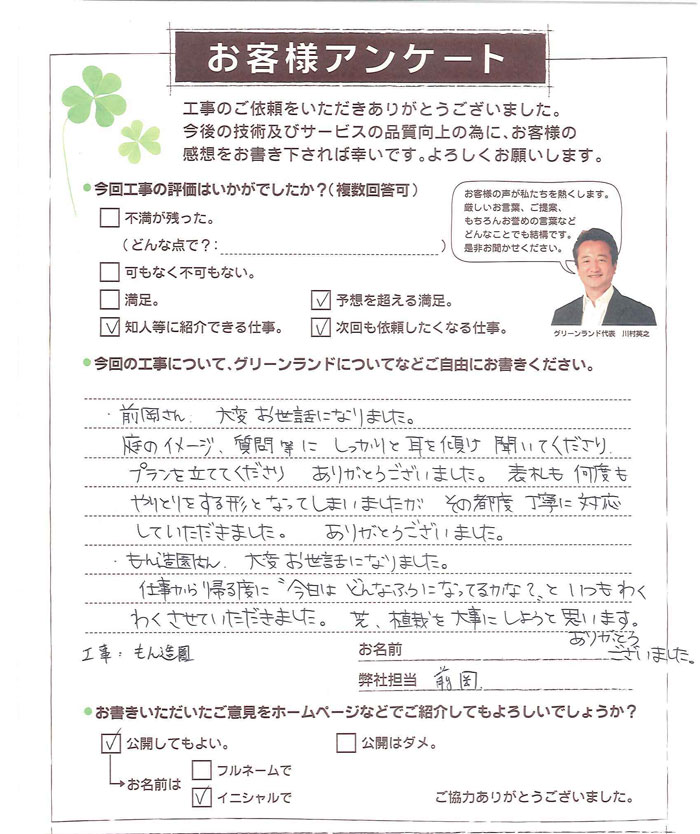 お客様アンケート
工事のご依頼をいただきありがとうございました。
今後の技術及びサービスの品質向上の為に、お客様の
感想をお書き下されば幸いです。よろしくお願いします。
●今回工事の評価はいかがでしたか？（複数回答可）
不満が残った。
（どんな点で？：　）
可もなく不可もない。
満足。
予想を超える満足。
知人等に紹介できる仕事。
次回も依頼したくなる仕事。
お客様の声が私たちを熱くします。
厳しいお言葉、ご提案、
もちろんお誉めの言葉など
どんなことでも結構です。
是非お聞かせください。
グリーンランド代表　川村英之
●今回の工事について、グリーンランドについてなどご自由にお書きください。
・前岡さん．大変お世話になりました。
庭のイメージ、質問等に しっかりと耳を傾け 聞いてくださり．
プランを立ててくださり ありがとうございました。 表札も 何度も
やりとりをする形となってしまいましたが その都度 丁寧に対応
していただきました。 ありがとうございました。
・もん造園さん．大変お世話になりました。
仕事から帰る度に〝今日は どんなふうになってるかな？〟と いつもわく
わくさせていただきました。 芝、植栽を大事にしようと思います。
ありがとう
ございました。
工事：もん造園
お名前
弊社担当　前岡
●お書きいただいたご意見をホームページなどでご紹介してもよろしいでしょうか？
公開してもよい。
公開はダメ。
お名前は
フルネームで
イニシャルで
ご協力ありがとうございました。